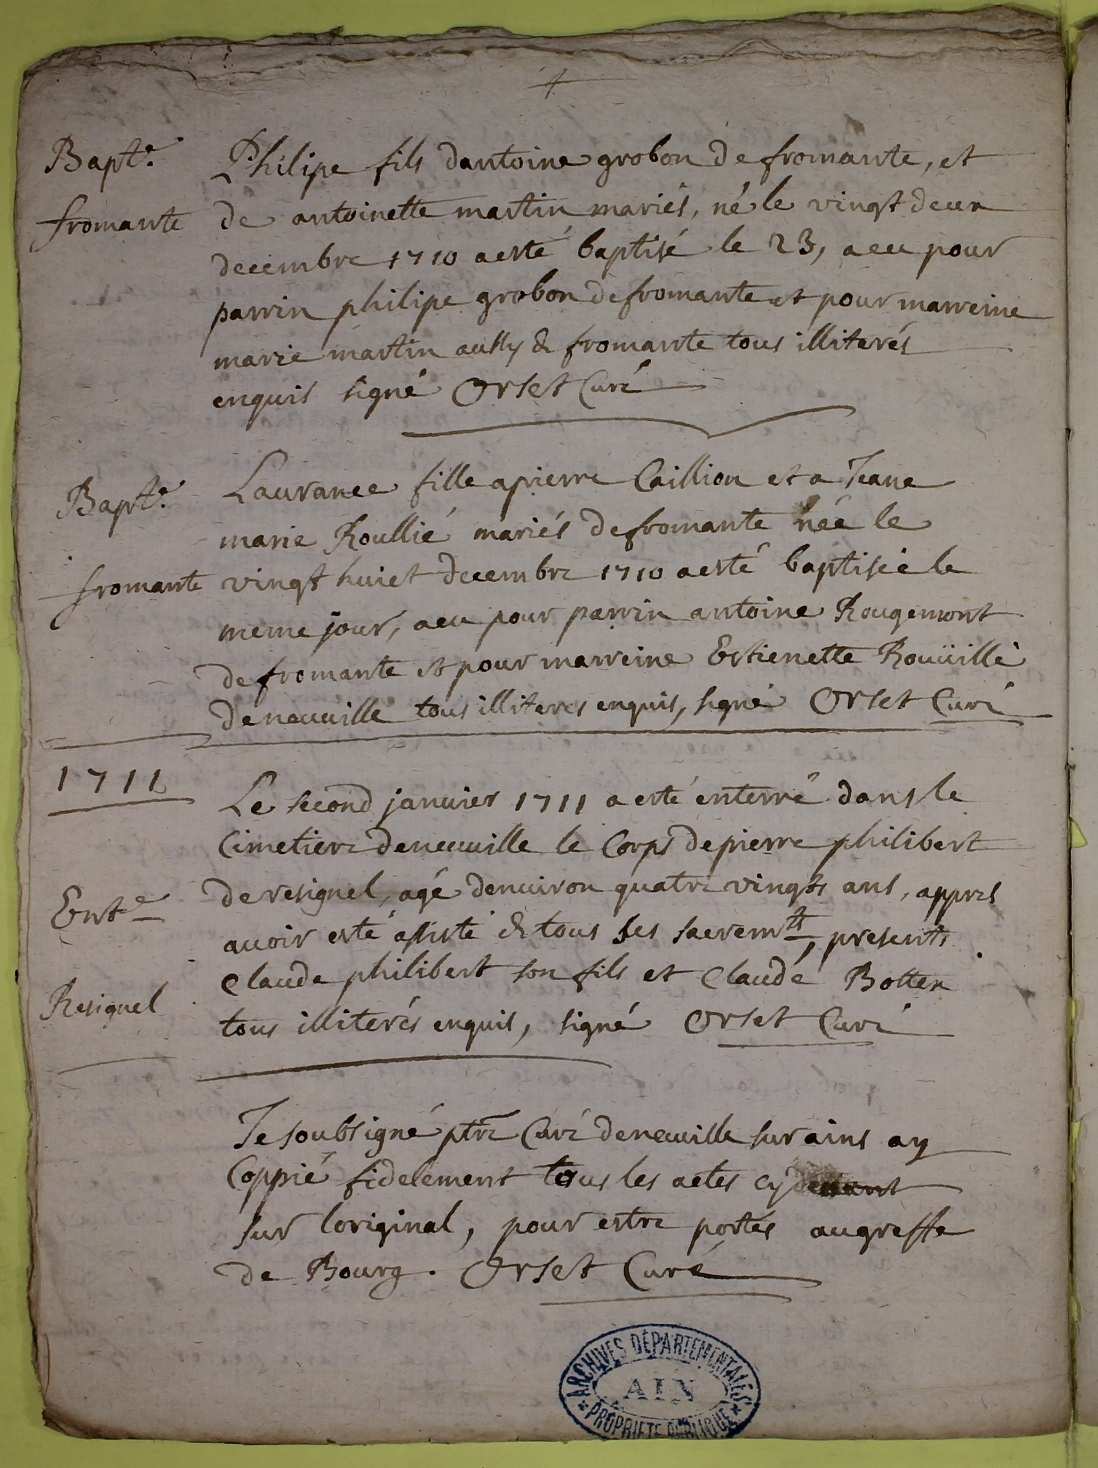 Bapt.e
fromante
Philipe fils dantoine grobon de fromante, et
de antoinette martin mariés, né le vingt deux
decembre 1710 a esté baptisé le 23, a eu pour
parrin philipe grobon de fromante et pour marreine
marie martin aussy de fromante tous illiterés
enquis signé Orset Curé
Bapt.e
fromante
Laurance fille a pierre Caillion et a Jeane
marie Roullié mariés de fromante née le
vingt huict decembre 1710 a esté baptisée le
meme jour, a eu pour parrin antoine Rougemont
de fromante et pour marreine Estienette Rouüillé
de neuville tous illiterés enquis, signé Orset Curé
1711
Ent.e
Resignel
Le second janvier 1711 a esté enterré dans le
Cimetiere de neuville le Corps de pierre philibert
de resignel, agé denviron quatre vingts ans, appres
avoir esté assisté de tous ses sacremts, presents
Claude philibert son fils et Claude Botter
tous illiterés enquis, signé Orset Curé
Je soubsigné ptre Curé de neuville sur ains ay
Coppié fidelement tous les actes cy devant
sur loriginal, pour estre portés au greffe
de Bourg. Orset Curé
ARCHIVES DÉPARTEMENTALES
AIN
PROPRIÉTÉ PUBLIQUE